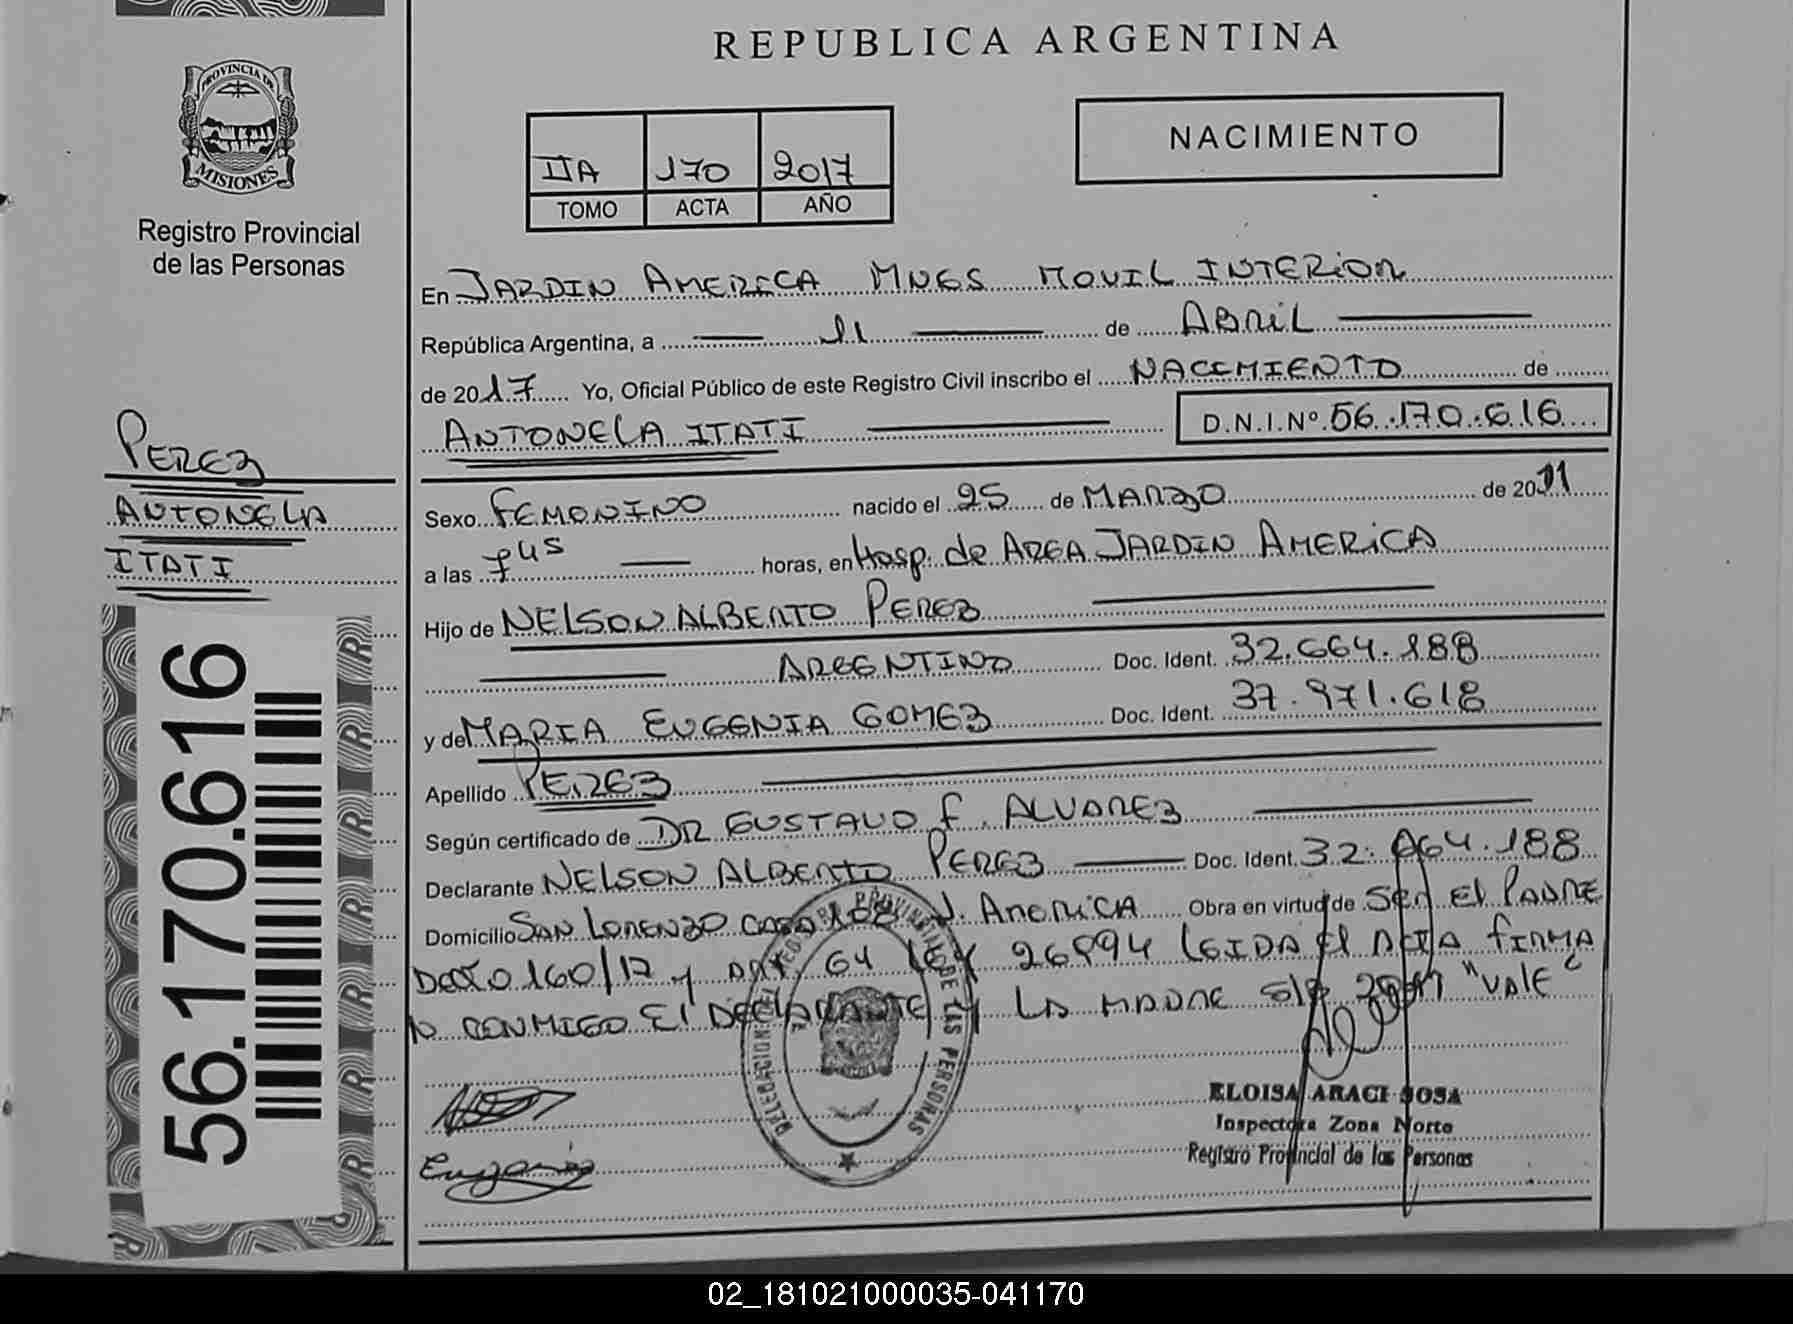 REPUBLICA ARGENTINA
PROVINCIA DE
MISIONES
Registro Provincial
de las Personas
IIA 170 2017
TOMO ACTA AÑO
NACIMIENTO
En JARDIN AMERICA MNES MOVIL INTERIOR
República Argentina, a 11 de ABRIL
de 2017 Yo, Oficial Público de este Registro Civil inscribo el NACIMIENTO de
ANTONELA ITATI D.N.I.Nº 56.170.616
PEREZ
ANTONELA
ITATI
56.170.616
Sexo FEMENINO nacido el 25 de MARZO de 2011
a las 7 45 horas, en Hosp. de AREA JARDIN AMERICA
Hijo de NELSON ALBERTO PEREZ
ARGENTINO Doc. Ident. 32.664.188
y de MARIA EUGENIA GOMEZ Doc. Ident. 37.971.618
Apellido PEREZ
Según certificado de DR GUSTAVO F. ALVAREZ
Declarante NELSON ALBERTO PEREZ Doc. Ident. 32. 188
Domicilio SAN LORENZO J. AMERICA Obra en virtud de SER EL PADRE
DECTO 160/17 y ART. 64 LEY 26994 LEIDA EL ACTA FIRMA
N CONMIGO EL DECLARANTE y LA MADRE S/R 2011 "VALE"
DE LAS PERSONAS
Eugenia
ELOISA ARACI SOSA
Inspectora Zona Norte
Registro Provincial de las Personas
02_181021000035-041170